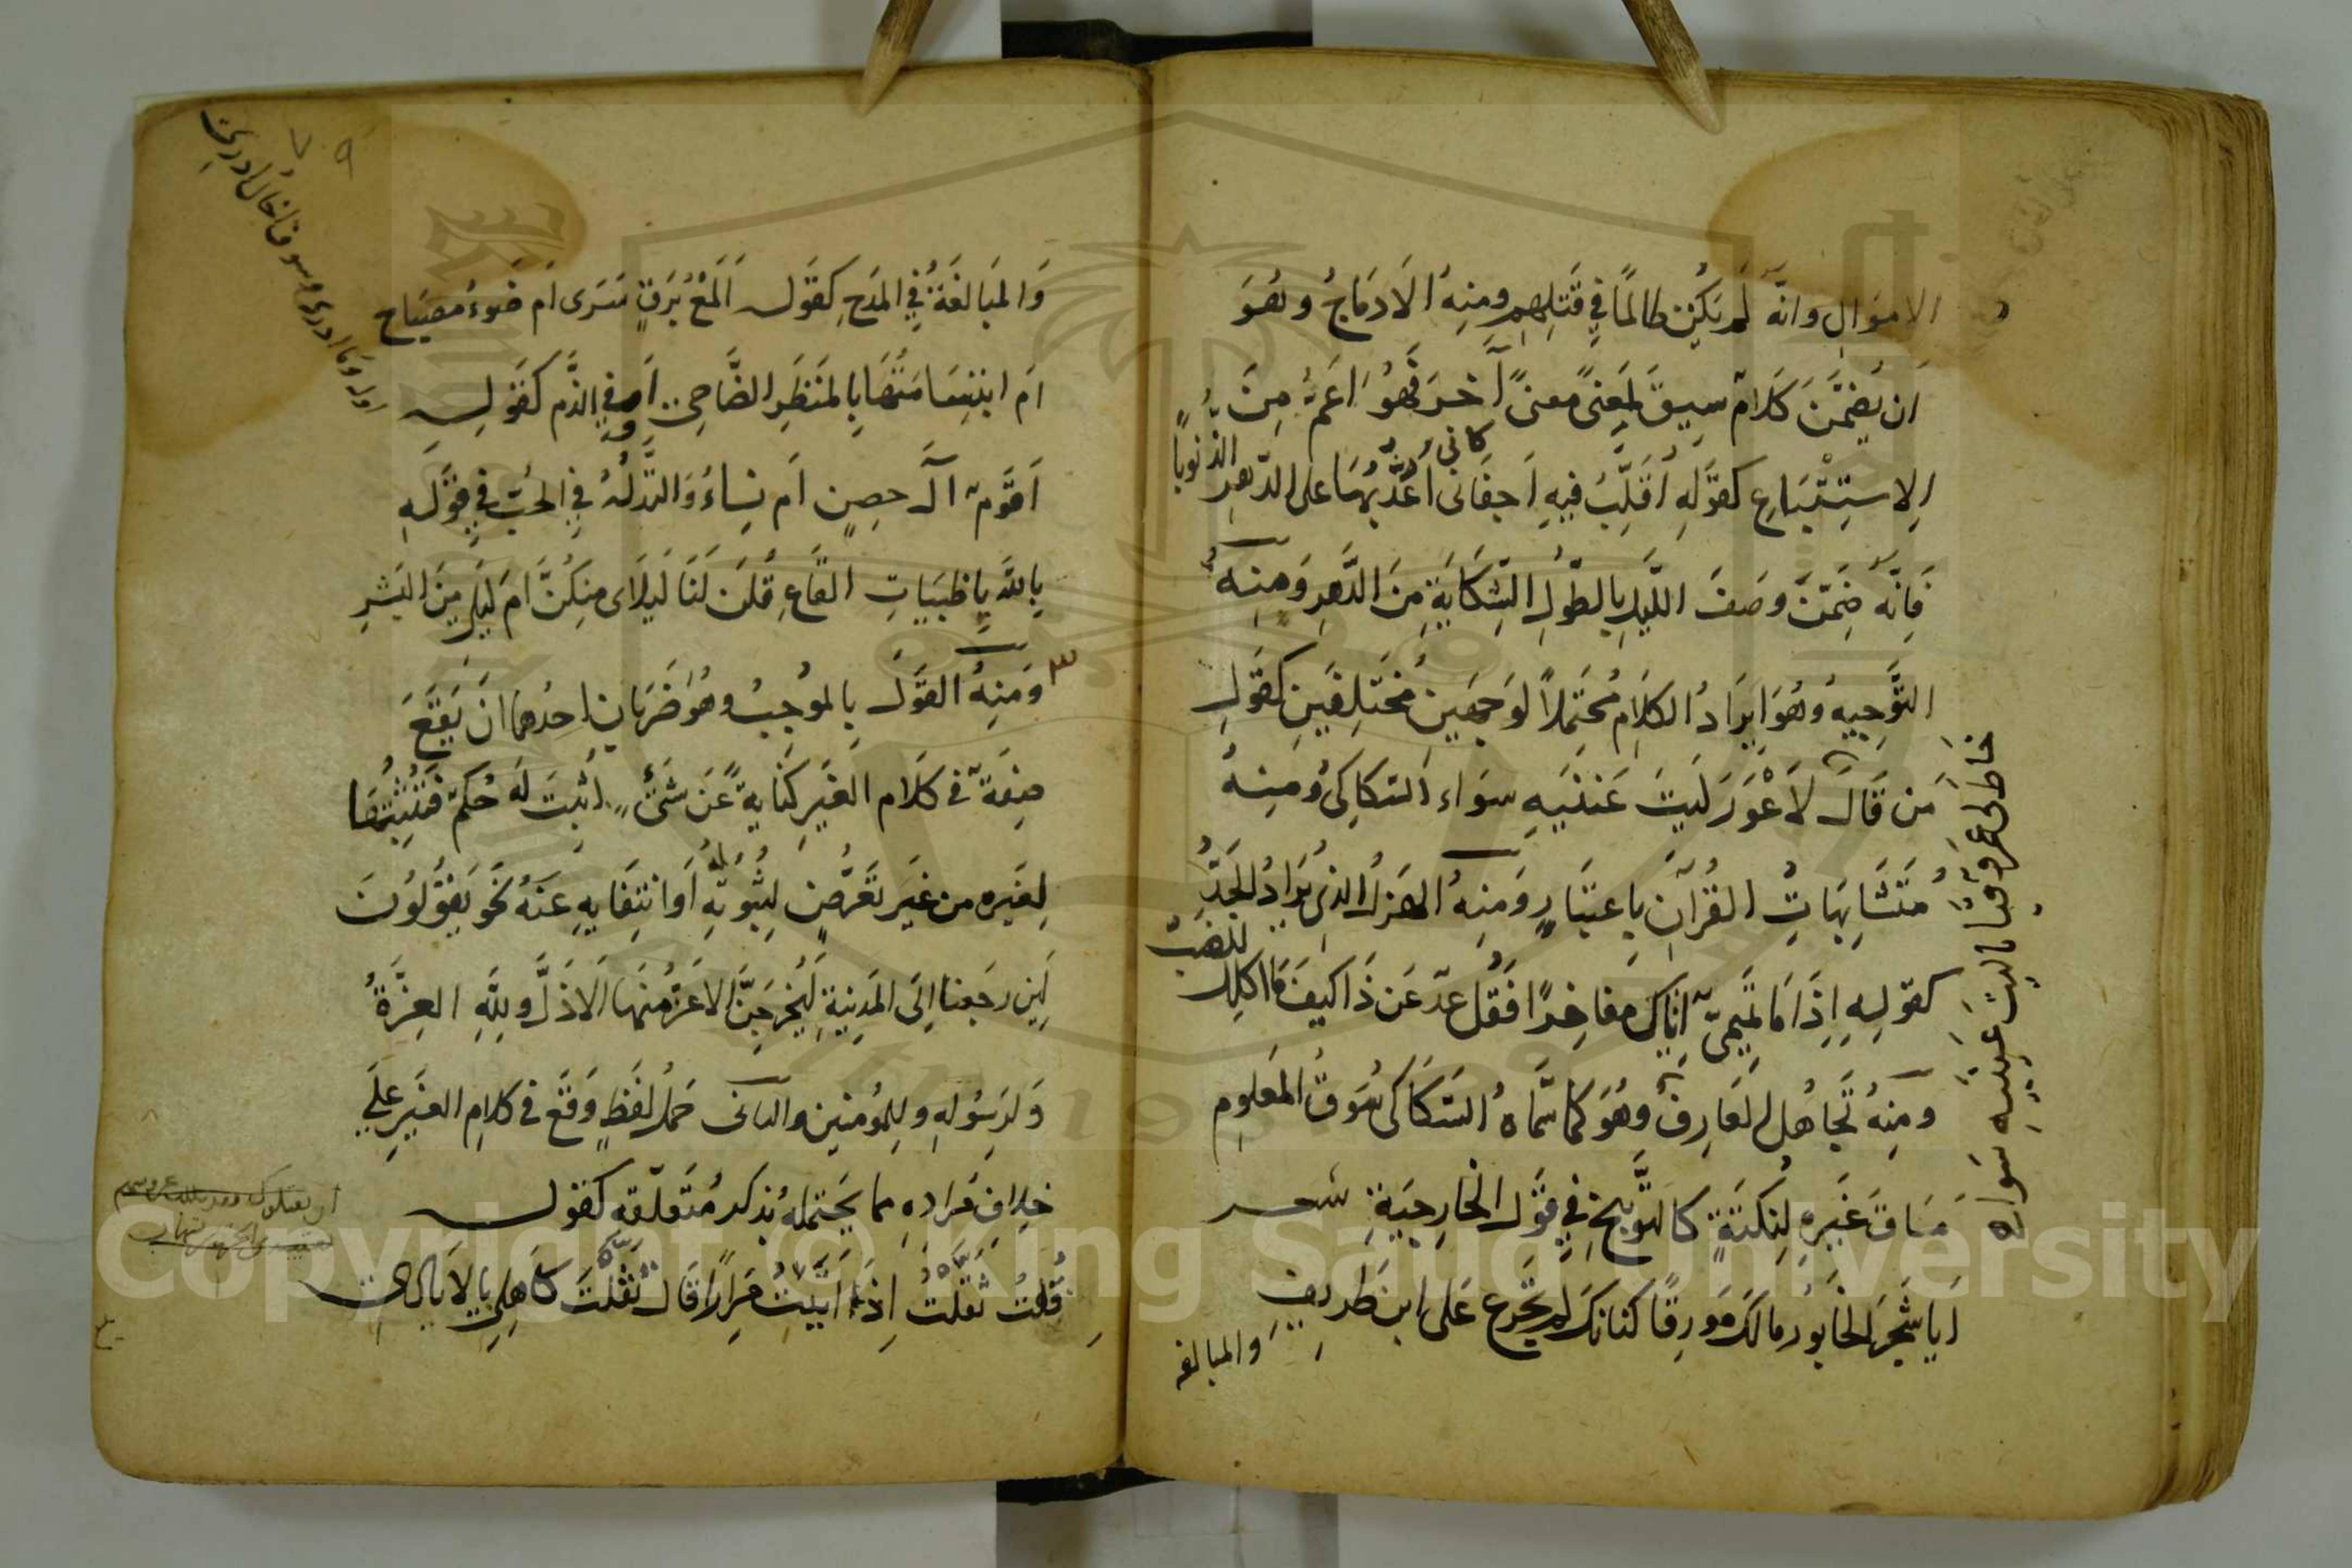 الاموال وانه لم يكن ظالمًا في قتلهم ومنه الادماج وهو
ان يضمن كلام سيق لمعنى معنى آخر فهو اعم من
الاستتباع كقوله اقلب فيه اجفانى كانى اعد بها على الدهر الذنوبا
فانه ضمن وصف الليل بالطول الشكاية من الدهر ومنه
التوجيه وهو ايراد الكلام محتملاً لوجهين مختلفين كقول
من قال لاعور ليت عينيه سواء السكاكى ومنه
متشابهات القرآن باعتبار ومنه الهزل الذى يراد الجد
كقوله اذا ما تميمى اتاك مفاخرًا فقل عد عن ذا كيف اكلك للضب
ومنه تجاهل العارف وهو كما سماه السكاكى سوق المعلوم
مساق غيره لنكتة كالتوبيخ في قول الخارجية شعر
ايا شجر الخابور مالك مورقًا كانك لم تجزع على ابن طريف
والمبالغه
خاط لى عمرو قبا ليت عينيه سواء
والمبالغة في المدح كقوله المع برق سرى ام ضوء مصباح
ام ابتسامتها بالمنظر الضاحى او في الذم كقوله
اقوم آل حصن ام نساء والتدله في الحب في قوله
بالله يا ظبيات القاع قلن لنا ليلاى منكن ام ليلى من البشر
ومنه القول بالموجب وهو ضربان احدهما ان يقع
صفة في كلام الغير كناية عن شئ اثبت له حكم فتثبتها
لغيره من غير تعرض لثبوته له او انتفايه عنه نحو يقولون
لين رجعنا الى المدينة ليخرجن الاعز منها الاذل ولله العزة
ولرسوله وللمؤمنين والثانى حمل لفظ وقع في كلام الغير على
خلاف مراده مما يحتمله بذكر متعلقه كقوله
قلت ثقلت اذ اتيت مرارًا قال ثقلت كاهلى بالايادى
وما ادرى وسوف اخال ادرى
٧٩
Copyright © King Saud University
1957